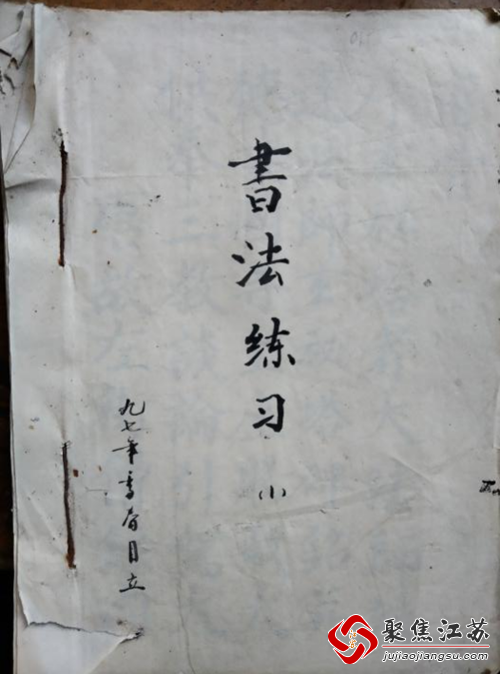 書法练习
(1)
九七年季春月立
聚焦江苏
jujiaojiangsu.com